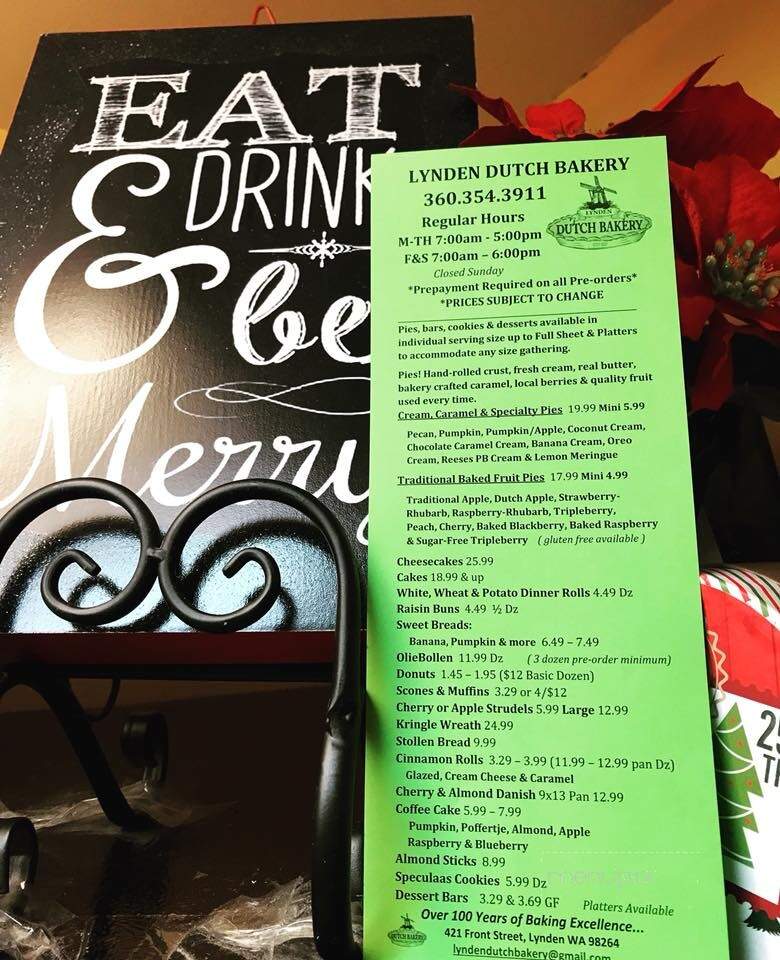 EAT
& DRINK
be
Merry
LYNDEN DUTCH BAKERY
360.354.3911
Regular Hours
M-TH 7:00am - 5:00pm
F&S 7:00am – 6:00pm
Closed Sunday
LYNDEN
DUTCH BAKERY
*Prepayment Required on all Pre-orders*
*PRICES SUBJECT TO CHANGE
Pies, bars, cookies & desserts available in
individual serving size up to Full Sheet & Platters
to accommodate any size gathering.
Pies! Hand-rolled crust, fresh cream, real butter,
bakery crafted caramel, local berries & quality fruit
used every time.
Cream, Caramel & Specialty Pies 19.99 Mini 5.99
Pecan, Pumpkin, Pumpkin/Apple, Coconut Cream,
Chocolate Caramel Cream, Banana Cream, Oreo
Cream, Reeses PB Cream & Lemon Meringue
Traditional Baked Fruit Pies 17.99 Mini 4.99
Traditional Apple, Dutch Apple, Strawberry-
Rhubarb, Raspberry-Rhubarb, Tripleberry,
Peach, Cherry, Baked Blackberry, Baked Raspberry
& Sugar-Free Tripleberry ( gluten free available )
Cheesecakes 25.99
Cakes 18.99 & up
White, Wheat & Potato Dinner Rolls 4.49 Dz
Raisin Buns 4.49 ½ Dz
Sweet Breads:
Banana, Pumpkin & more 6.49 – 7.49
OlieBollen 11.99 Dz ( 3 dozen pre-order minimum)
Donuts 1.45 – 1.95 ($12 Basic Dozen)
Scones & Muffins 3.29 or 4/$12
Cherry or Apple Strudels 5.99 Large 12.99
Kringle Wreath 24.99
Stollen Bread 9.99
Cinnamon Rolls 3.29 – 3.99 (11.99 – 12.99 pan Dz)
Glazed, Cream Cheese & Caramel
Cherry & Almond Danish 9x13 Pan 12.99
Coffee Cake 5.99 – 7.99
Pumpkin, Poffertje, Almond, Apple
Raspberry & Blueberry
Almond Sticks 8.99
Speculaas Cookies 5.99 Dz
Dessert Bars 3.29 & 3.69 GF Platters Available
Over 100 Years of Baking Excellence...
DUTCH BAKERY
421 Front Street, Lynden WA 98264
lyndendutchbakery@gmail.com
25